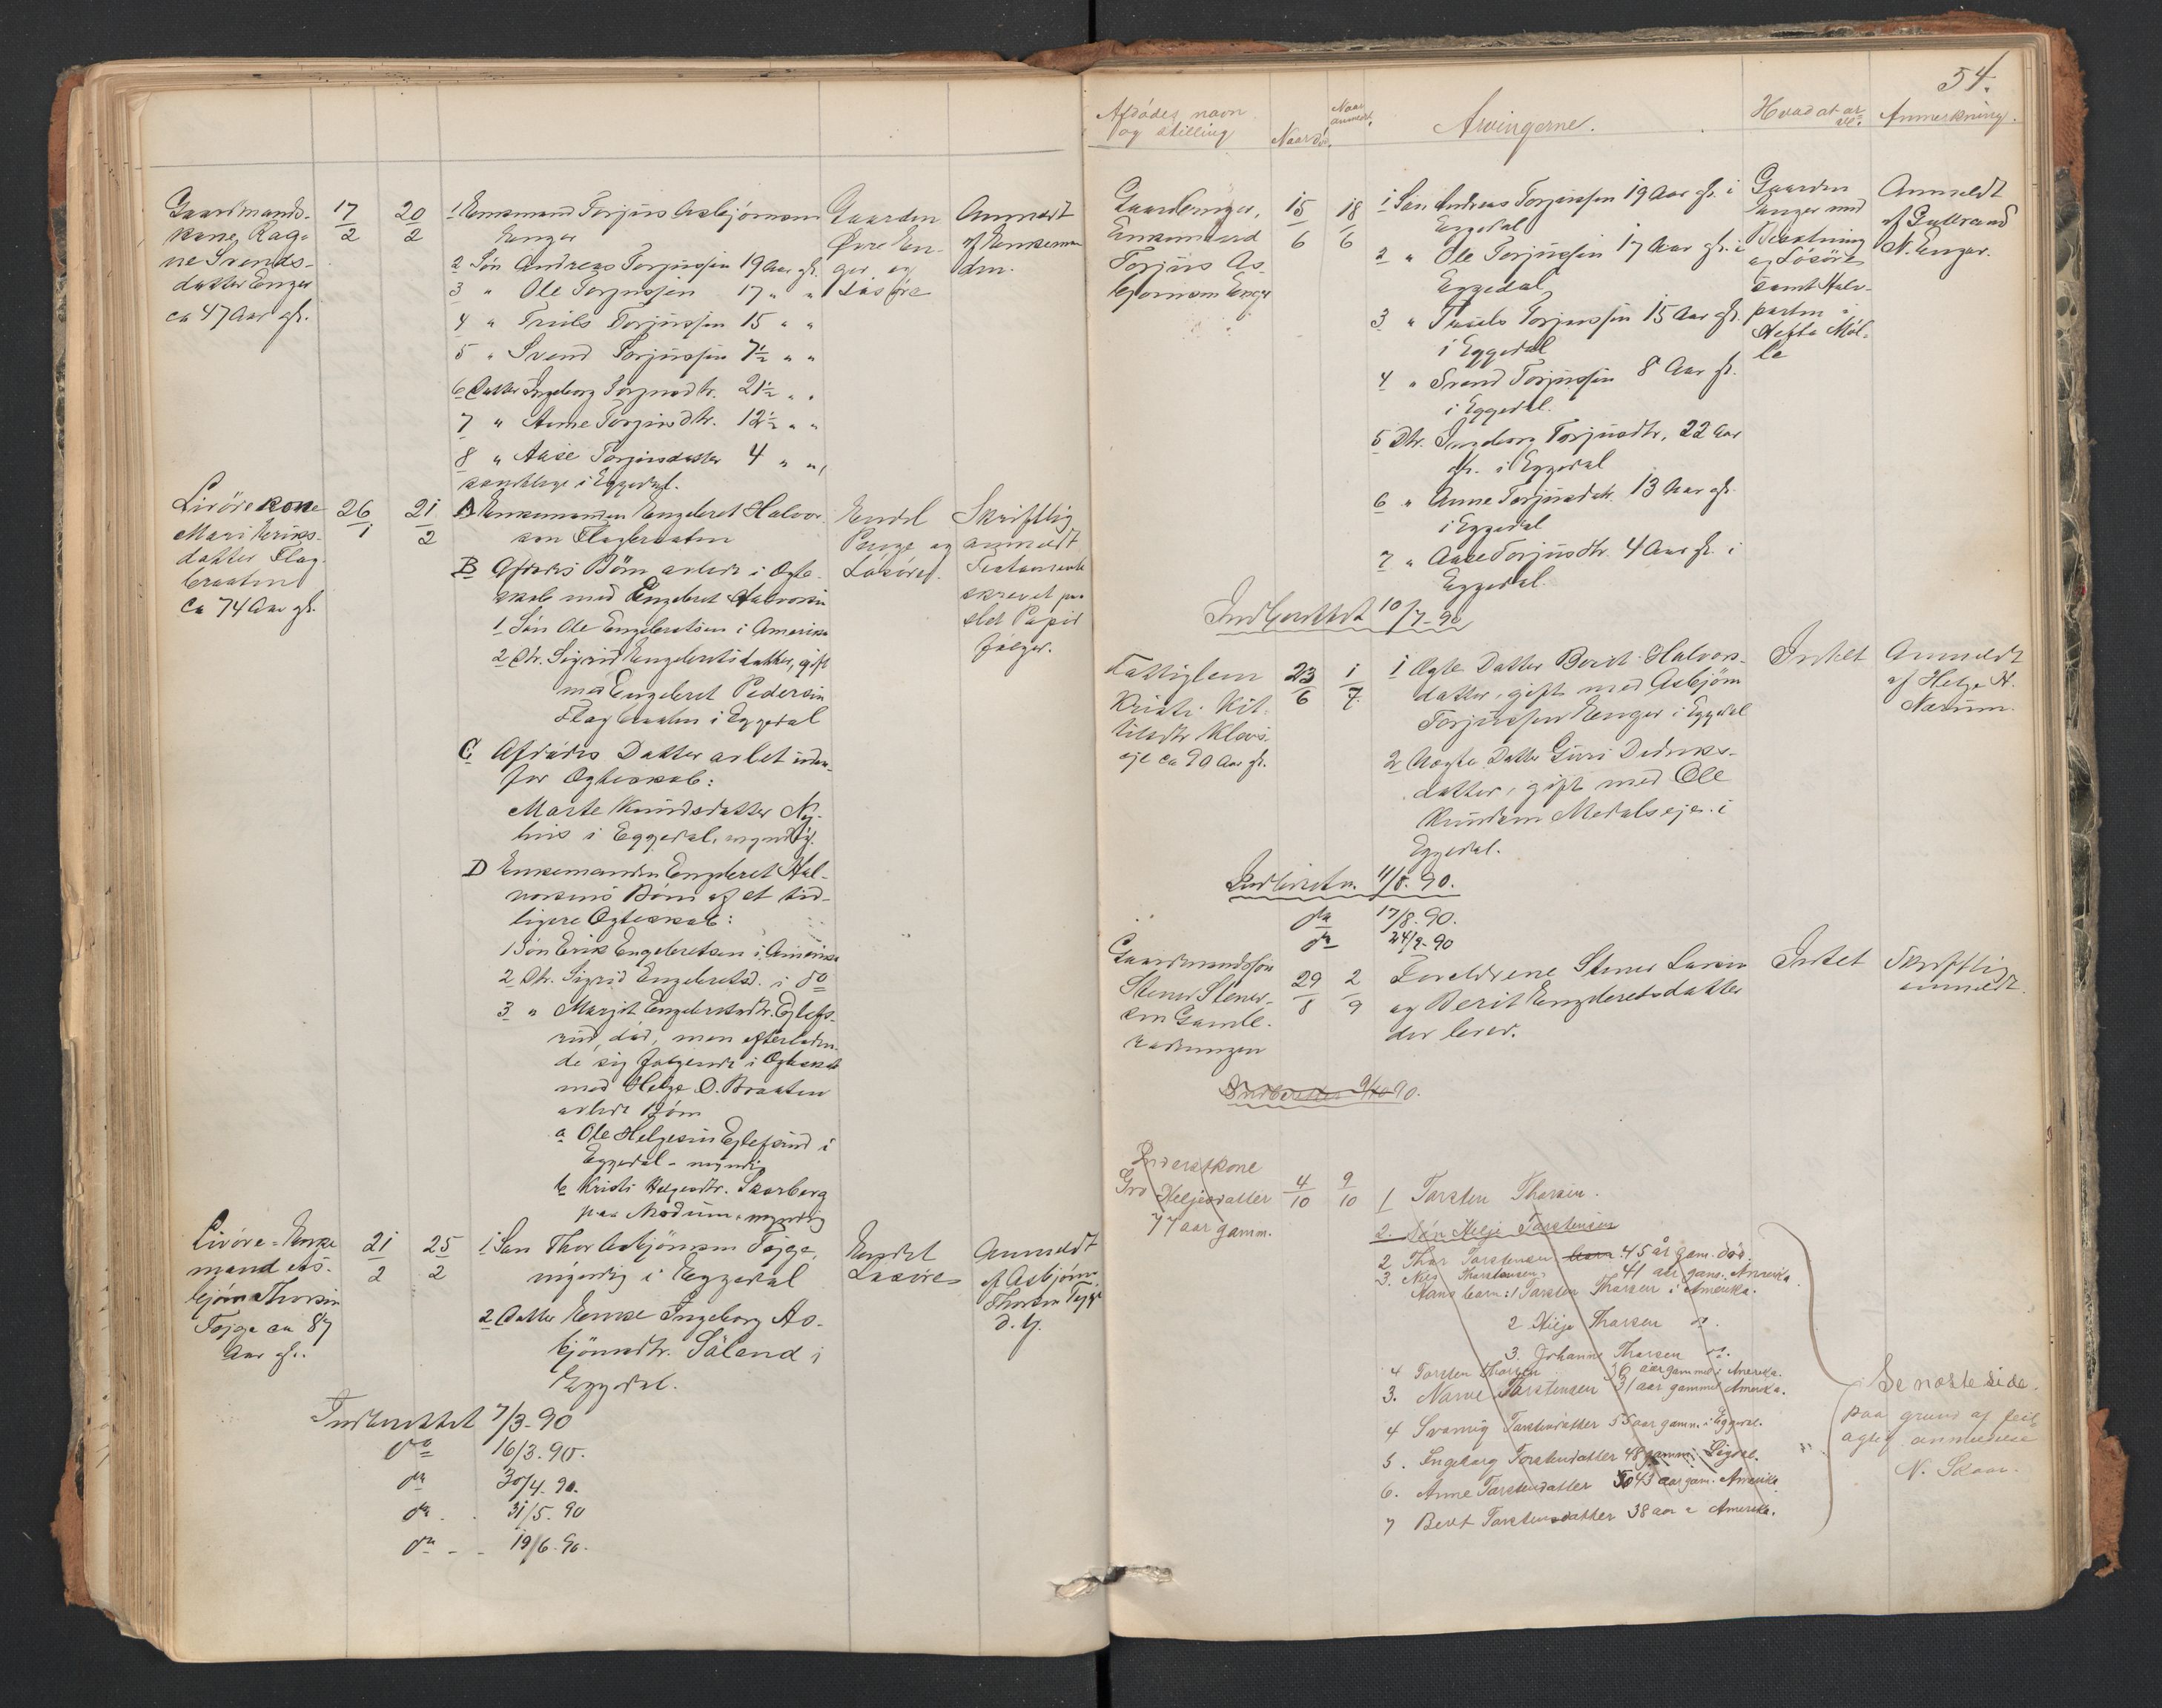 Gaardmands-
kone Rag-
ne Svends-
datter Enger
ca 47 Aar gl.
17/2
20/2
1 Enkemand Torjus Asbjörnsen
Enger
2 Sön Andreas Torjussen 19 Aar gl.
3 " Ole Torjussen 17 " "
4 " Truls Torjussen 15 " "
5 " Svend Torjussen 7½ " "
6 Datter Ingeborg Torjusdtr. 21½ " "
7 " Anne Torjusdtr. 12½ " "
8 " Aase Torjusdatter 4 " ",
samtlige i Eggedal.
Gaarden
Övre En-
ger og
Lösöre
Anmeldt
af Enkeman
den.
Livörekone
Mari Eriks-
datter Flag-
braaten
Ca 74 Aar gl.
26/1
21/2
A Enkemanden Engebret Halvor-
sen Flagbraaten
B Afdödes Börn avlede i Ægte-
skab med Engebret Halvorsen
1 Sön Ole Engebretsen i Amerika
2 Dtr. Sigrid Engebretsdatter, gift
med Engebret Pedersen
Flagbraaten i Eggedal
C Afdödes Datter avlet uden-
for Ægteskab:
Marte Knudsdatter Ny-
hus i Eggedal, myndig.
D Enkemanden Engebret Hal-
vorsens Börn af et tid-
ligere Ægteskab:
1 Sön Erik Engebretsen i Amerika
2 Dtr. Sigrid Engebretsd. i do
3 " Margit Engebretsdtr. Eglefs-
rud, död, men efterladen-
de sig fölgende i Ægteskab
med Helge O. Braaten
avlede Börn
a Ole Helgesen Eglefsrud i
Eggedal - myndig
b Kristi Helgesdtr. Skarberg
paa Modum, myndig
Endel
Penge og
Lösöre.
Skriftlig
anmeldt
Testamente
skrevet paa
slet Papir
fölger.
Livöre-Enke
mand As-
björn Thorsen
Töjge ca 87
Aar gl.
21/2
25/2
1 Sön Thor Asbjörnsen Töjge,
myndig i Eggedal
2 Datter Enke Ingeborg As-
björnsdtr. Såland i
Eggedal.
Endel
Lösöre
Anmeldt
af Asbjörn
Thorsen Töjge
d. y.
Indberettet 7/3-90
do 16/3.90.
do 30/4.90.
do 31/5.90
do 19/6.90.
54.
Afdödes navn
og stilling
Naar död.
Naar
anmeldt.
Arvingerne.
Hvad at ar-
ve.
Anmerkning.
Gaardbruger,
Enkemand
Torjus As-
björnsen Enger
15/6
18/6
1 Sön Andreas Torjussen 19 Aar gl. i
Eggedal
2 " Ole Torjussen 17 Aar gl. i
Eggedal
3 " Truls Torjussen 15 Aar gl.
i Eggedal
4 " Svend Torjussen 8 Aar gl.
i Eggedal.
5 Dtr. Ingeborg Torjusdtr, 22 Aar
gl. i Eggedal
6 " Anne Torjusdatr. 13 Aar gl.
i Eggedal
7 " Aase Torjusdtr. 4 Aar gl. i
Eggedal.
Gaarden
Enger med
Besætning
og Lösöre
samt Halv-
parten i
Mölle
Anmeldt
af Gulbrand
N. Enger.
Indberettet 10/7-90
Fattiglem
Kristi Kit-
tilsdtr Klevs-
eje ca 90 Aar gl.
23/6
1/7
1 Ægte Datter Berit Halvors-
datter, gift med Asbjörn
Torjussen Enger i Eggedal
2 Uægte Datter Guri Didriks-
datter, gift med Ole
Knudsen Medalseje i
Eggedal.
Intet
Anmeldt
af Helge H.
Nærum.
Indberetn. 11/8.90.
do 17/8.90.
do 24/9-90
Gaardmandssön
Stener Stener-
sen Gamle-
29/8
2/9
Forældrene Stener Larsen
og Berit Engebretsdatter
der lever.
Intet
Skriftlig
anmeldt.
Indberettet 9/10 90.
Inderstkone
Gro Heljesdatter
77 aar gamm.
4/10
9/10
1 Torsten Thorsen.
2. Sön Helje Torstensen
2 Thor Torstensen barn 45 år gam. död.
3. Nils Thorstensen 41 aar gam. Amerika.
Hans barn: 1 Torsten Thorsen i Amerika.
2 Helje Thorsen do.
3. Johanne Thorsen do.
4 Torsten Thorsen 36 aar gammel i Amerika.
3. Narve Torstensen 31 aar gammel Amerika.
4 Svanug Torstensdatter 55 aar gamm. i Eggedal.
5. Ingeborg Torstensdatter 48 gamm. i Sigdal.
6. Anne Torstensdatter 43 aar gam. Amerika.
7 Berit Torstensdatter 38 aar i Amerika.
Se næste side.
paa grund af feil-
agtig anmeldelse
N. Skaar.